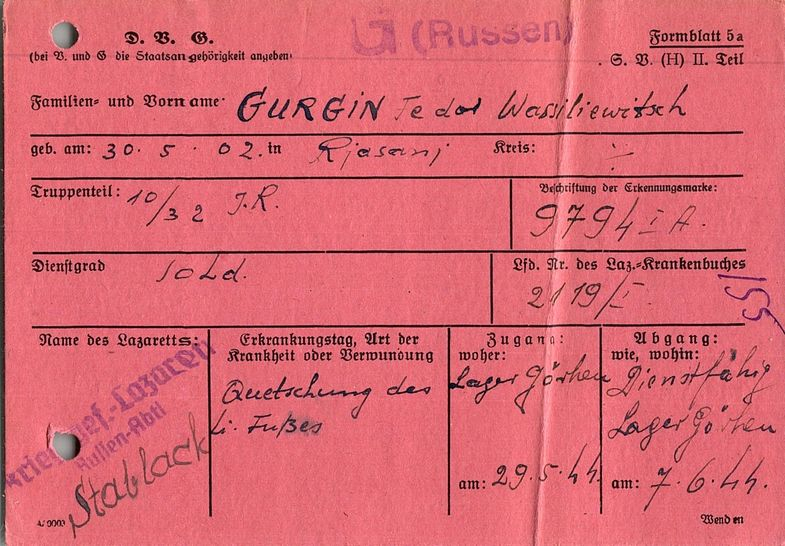 D. V. G.
(bei V. und G die Staatsangehörigkeit angeben)
G (Russen)
Formblatt 5a
S. V. (H) II. Teil
Familien- und Vorname: GURGIN Fedor Wassiliewitsch
geb. am: 30. 5. 02. in Rjasanj Kreis: ÷
Truppenteil: 10/32 J.R.
Beschriftung der Erkennungsmarke:
9794 I A.
Dienstgrad Sold.
Lfd. Nr. des Laz.-Krankenbuches
2119/I.
Name des Lazaretts:
Kriegsgef.-Lazarett
Russen-Abtl
Stablack
Erkrankungstag, Art der
Krankheit oder Verwundung
Quetschung des
li. Fußes
Zugang:
woher:
Lager Görken
am: 29.5.44.
Abgang:
wie, wohin:
Dienstfähig
Lager Görken
am: 7.6.44.
Wenden